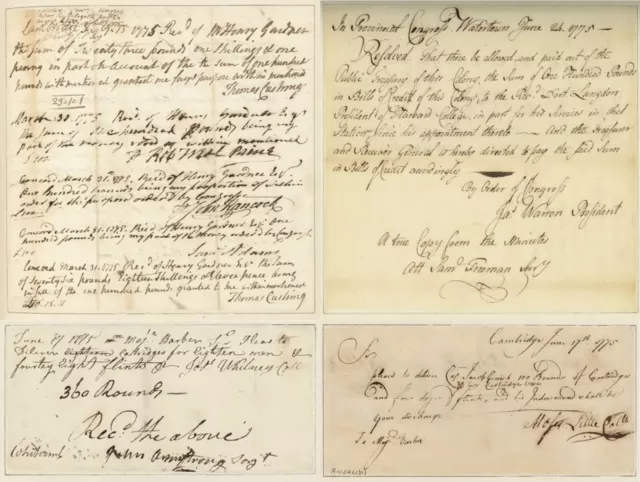 1775 Recd of Mr Henry Gardner
the sum of Twenty three pounds one shillings & one
penny in part on account of the sum of one hundred
pounds within mentioned granted me for ye purpose within mentioned
Thomas Cushing
23..1..1
March 30. 1775 Recd. of Henry Gardner Esqr
the sum of One hundred Pounds being my
part of the money voted as within mentioned
£100. Robt Treat Paine
Concord March 31. 1775. Recd of Henry Gardner Esqr.
One Hundred pounds being my proportion of within
order for the purpose ordered by Congress
John Hancock
Concord March 31. 1775. Recd of Henry Gardner Esqr One
hundred pounds being my part of the Money ordered by Congress
£100 Saml Adams
Concord March 31. 1775 Recd of Henry Gardner Esqr the Sum
of Seventy six pounds Eighteen shillings & Eleven pence
in full of the one hundred pounds granted to me within mentioned
Thomas Cushing
In Provincial Congress Watertown June 24. 1775 —
Resolved That there be allowed and paid out of the
Public Treasury of this Colony, the Sum of One Hundred Pounds
in Bills of Credit of this Colony, to the Revd. Doct Langdon
President of Harvard College, in part for his Services in that
Station since his appointment thereto — And the Treasurer
and Receiver General is hereby directed to pay the said Sum
in Bills of Credit accordingly
By Order of Congress
Jas Warren President
A true Copy from the Minutes
Att Saml Freeman Secy
June 17 1775 Majr Barber Sr Pleas to
Deliver eighteen Catridges for Eighteen men &
fourtey Eight flints
360 Rounds —
Recd the above
John Armstrong Sorjt
Cambridge June 17th 1775
Sr
please to deliver Cap Jacob Gerrish 100 Pounds of Cartridges
and four dozen flints, and his Indorsement shall be
your discharge
Moses Little Coll
To Majr Barber